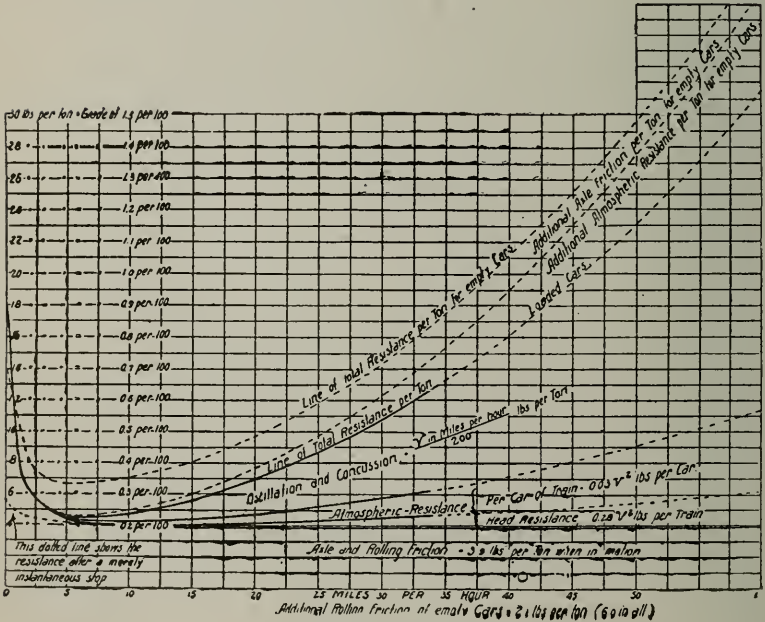 30 lbs per ton = Grade of 1.5 per 100
28 1.4 per 100
26 1.3 per 100
24 1.2 per 100
22 1.1 per 100
20 1.0 per 100
18 0.9 per 100
16 0.8 per 100
14 0.7 per 100
12 0.6 per 100
10 0.5 per 100
8 0.4 per 100
6 0.3 per 100
4 0.2 per 100
Additional Axle Friction per Ton for empty Cars
Additional Atmospheric Resistance per Ton for empty Cars
Loaded Cars
Line of Total Resistance per Ton for empty Cars
Line of Total Resistance per Ton
Oscillation and Concussion = V² in Miles per hour lbs per Ton
200
Atmospheric-Resistance
Per Car of Train
lbs per Car
Head Resistance 0.28 V² lbs per Train
Axle and Rolling Friction - 3.9 lbs per Ton when in motion
This dotted line shows the
resistance after a merely
instantaneous stop
0 5 10 15 20 25 MILES 30 PER 35 HOUR 40 45 50
Additional Rolling Friction of empty Cars = 2.1 lbs per ton (6.0 in all)